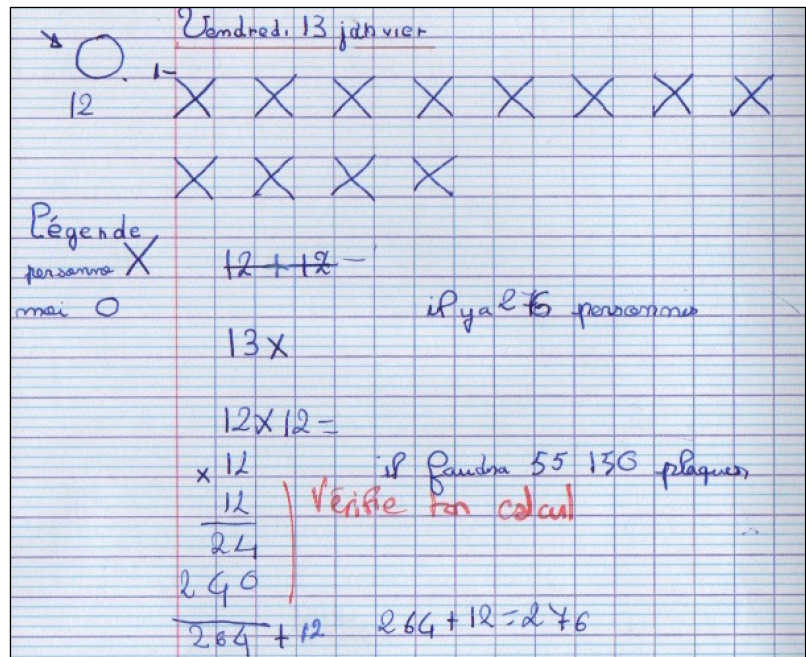 Vendredi 13 janvier
1-
12
X X X X X X X X
X X X X
Légende
personne X
moi O
12 + 12 =
il y a 276 personnes
13 X
12 x 12 =
x 12
12
24
240
264 + 12
il faudra 55 150 plaques
Vérifie ton calcul
264 + 12 = 276